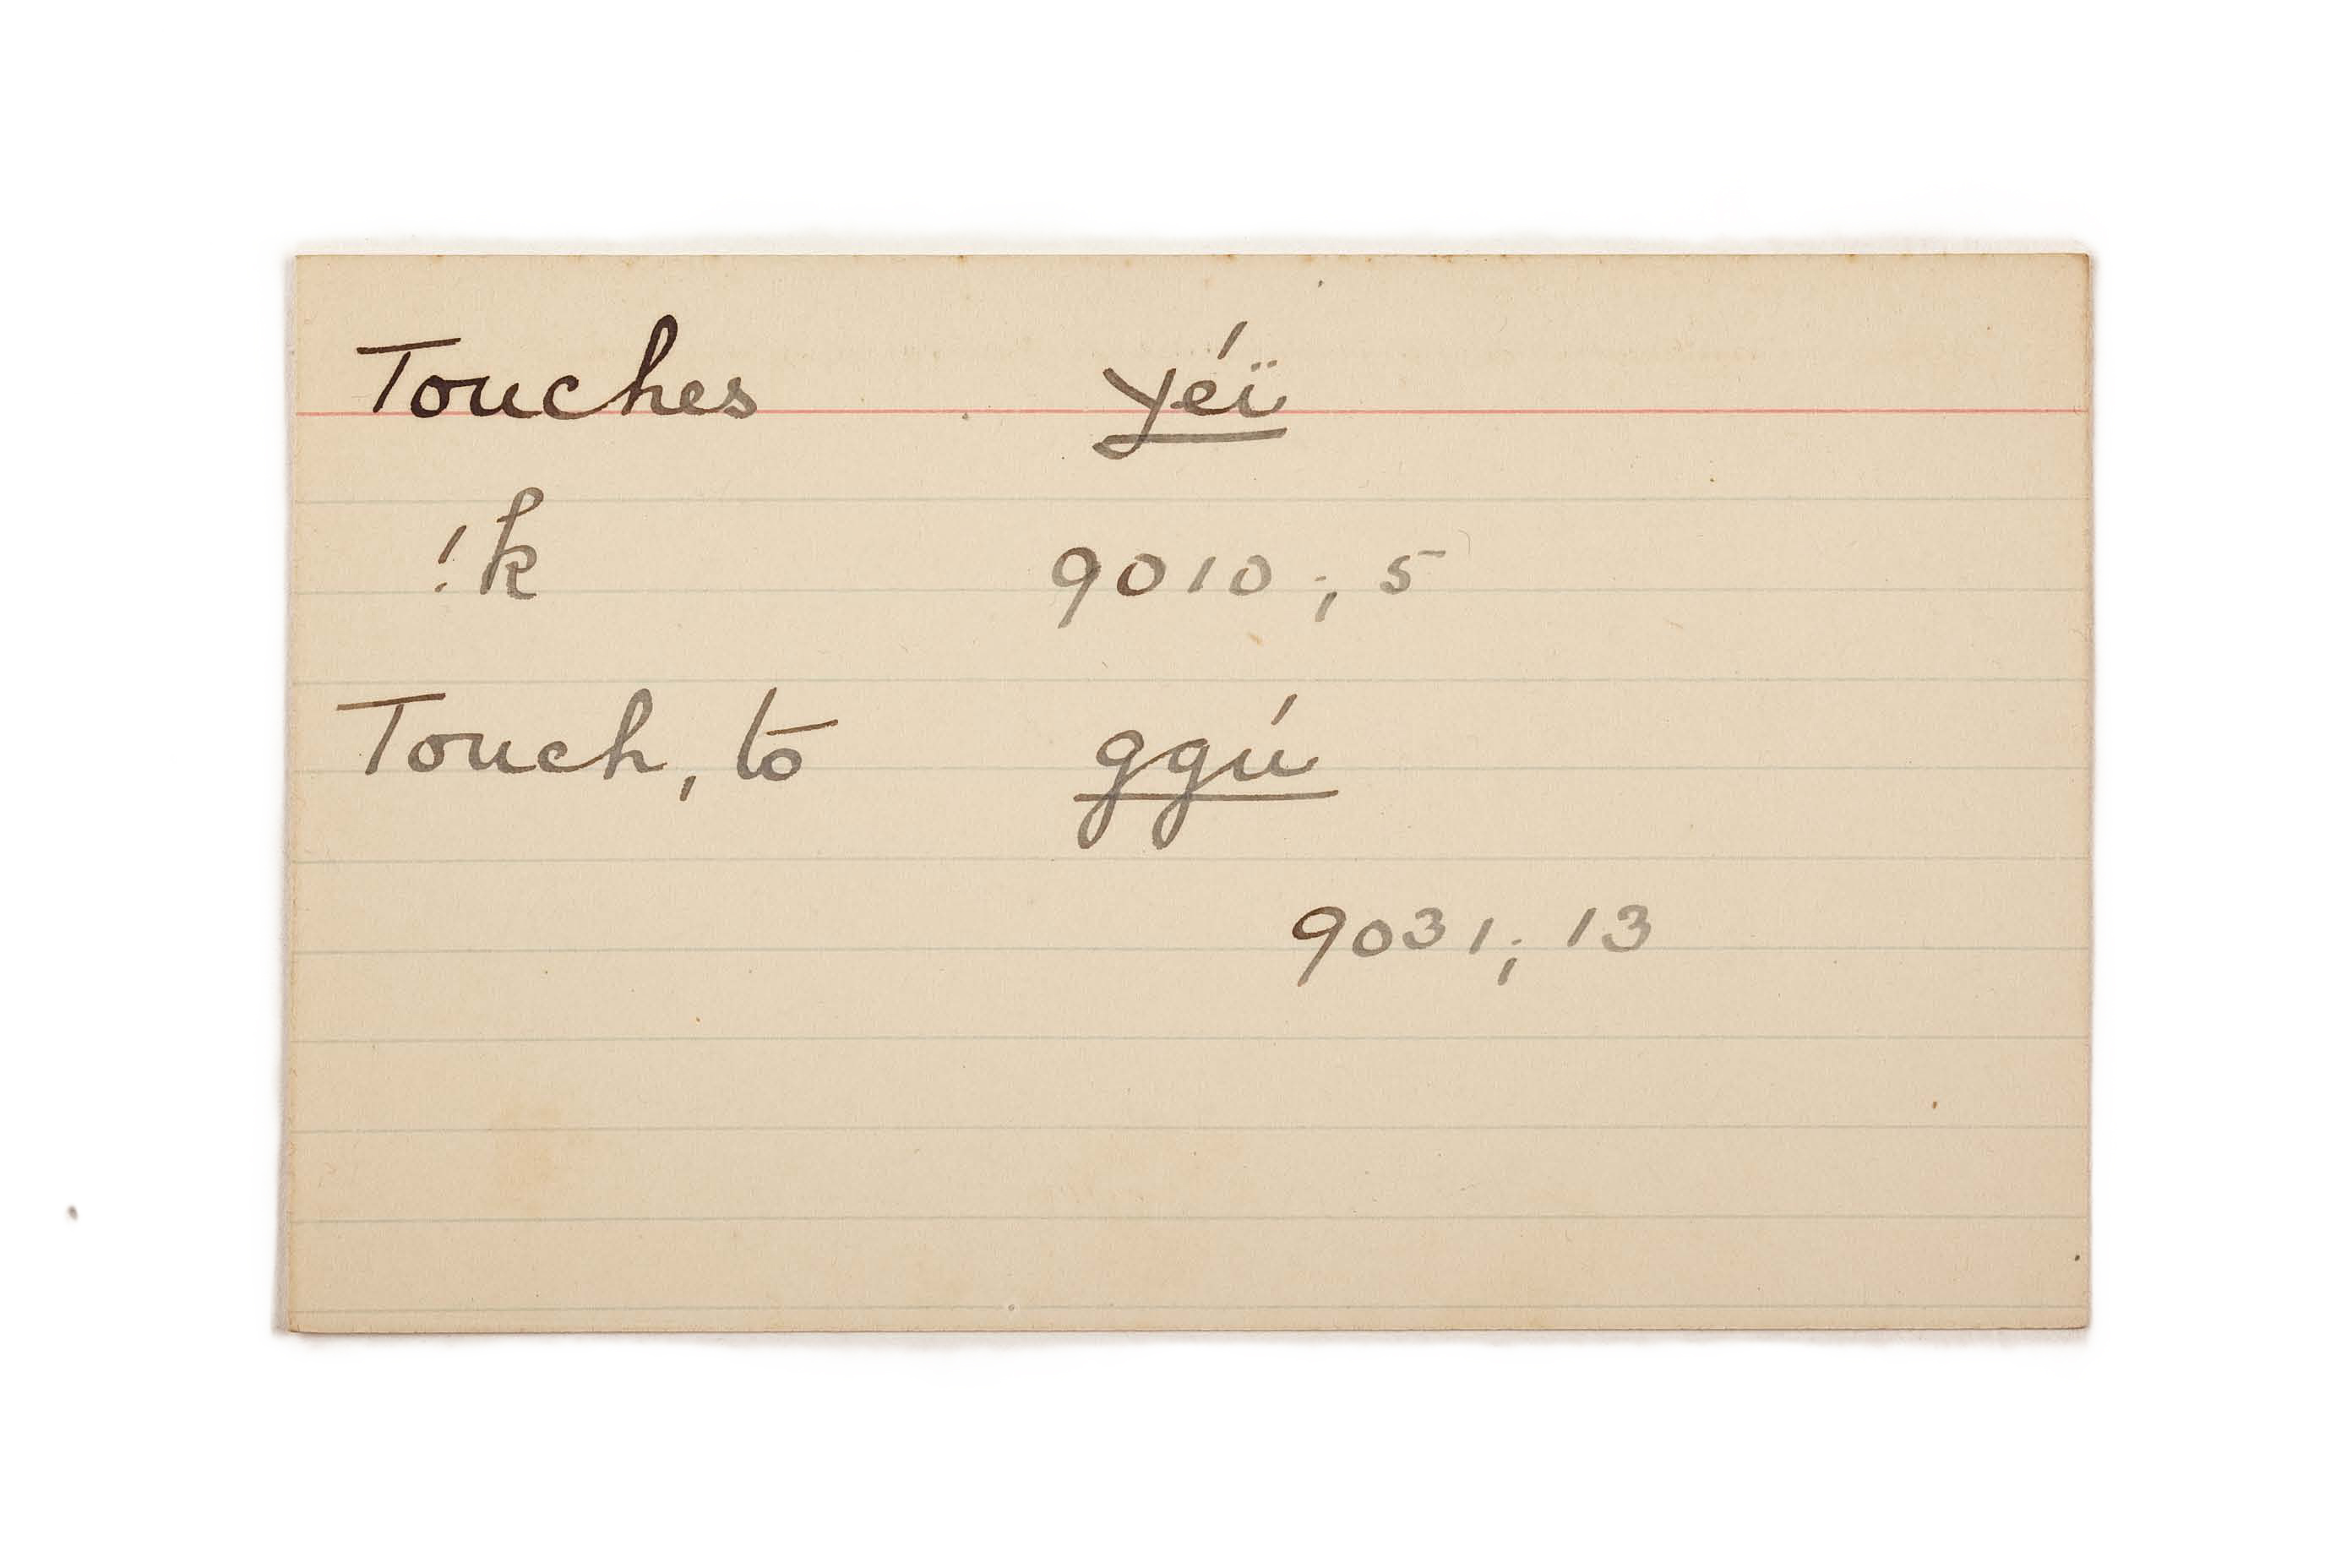 Touches yéï
!k 9010; 5
Touch, to ggú
9031; 13